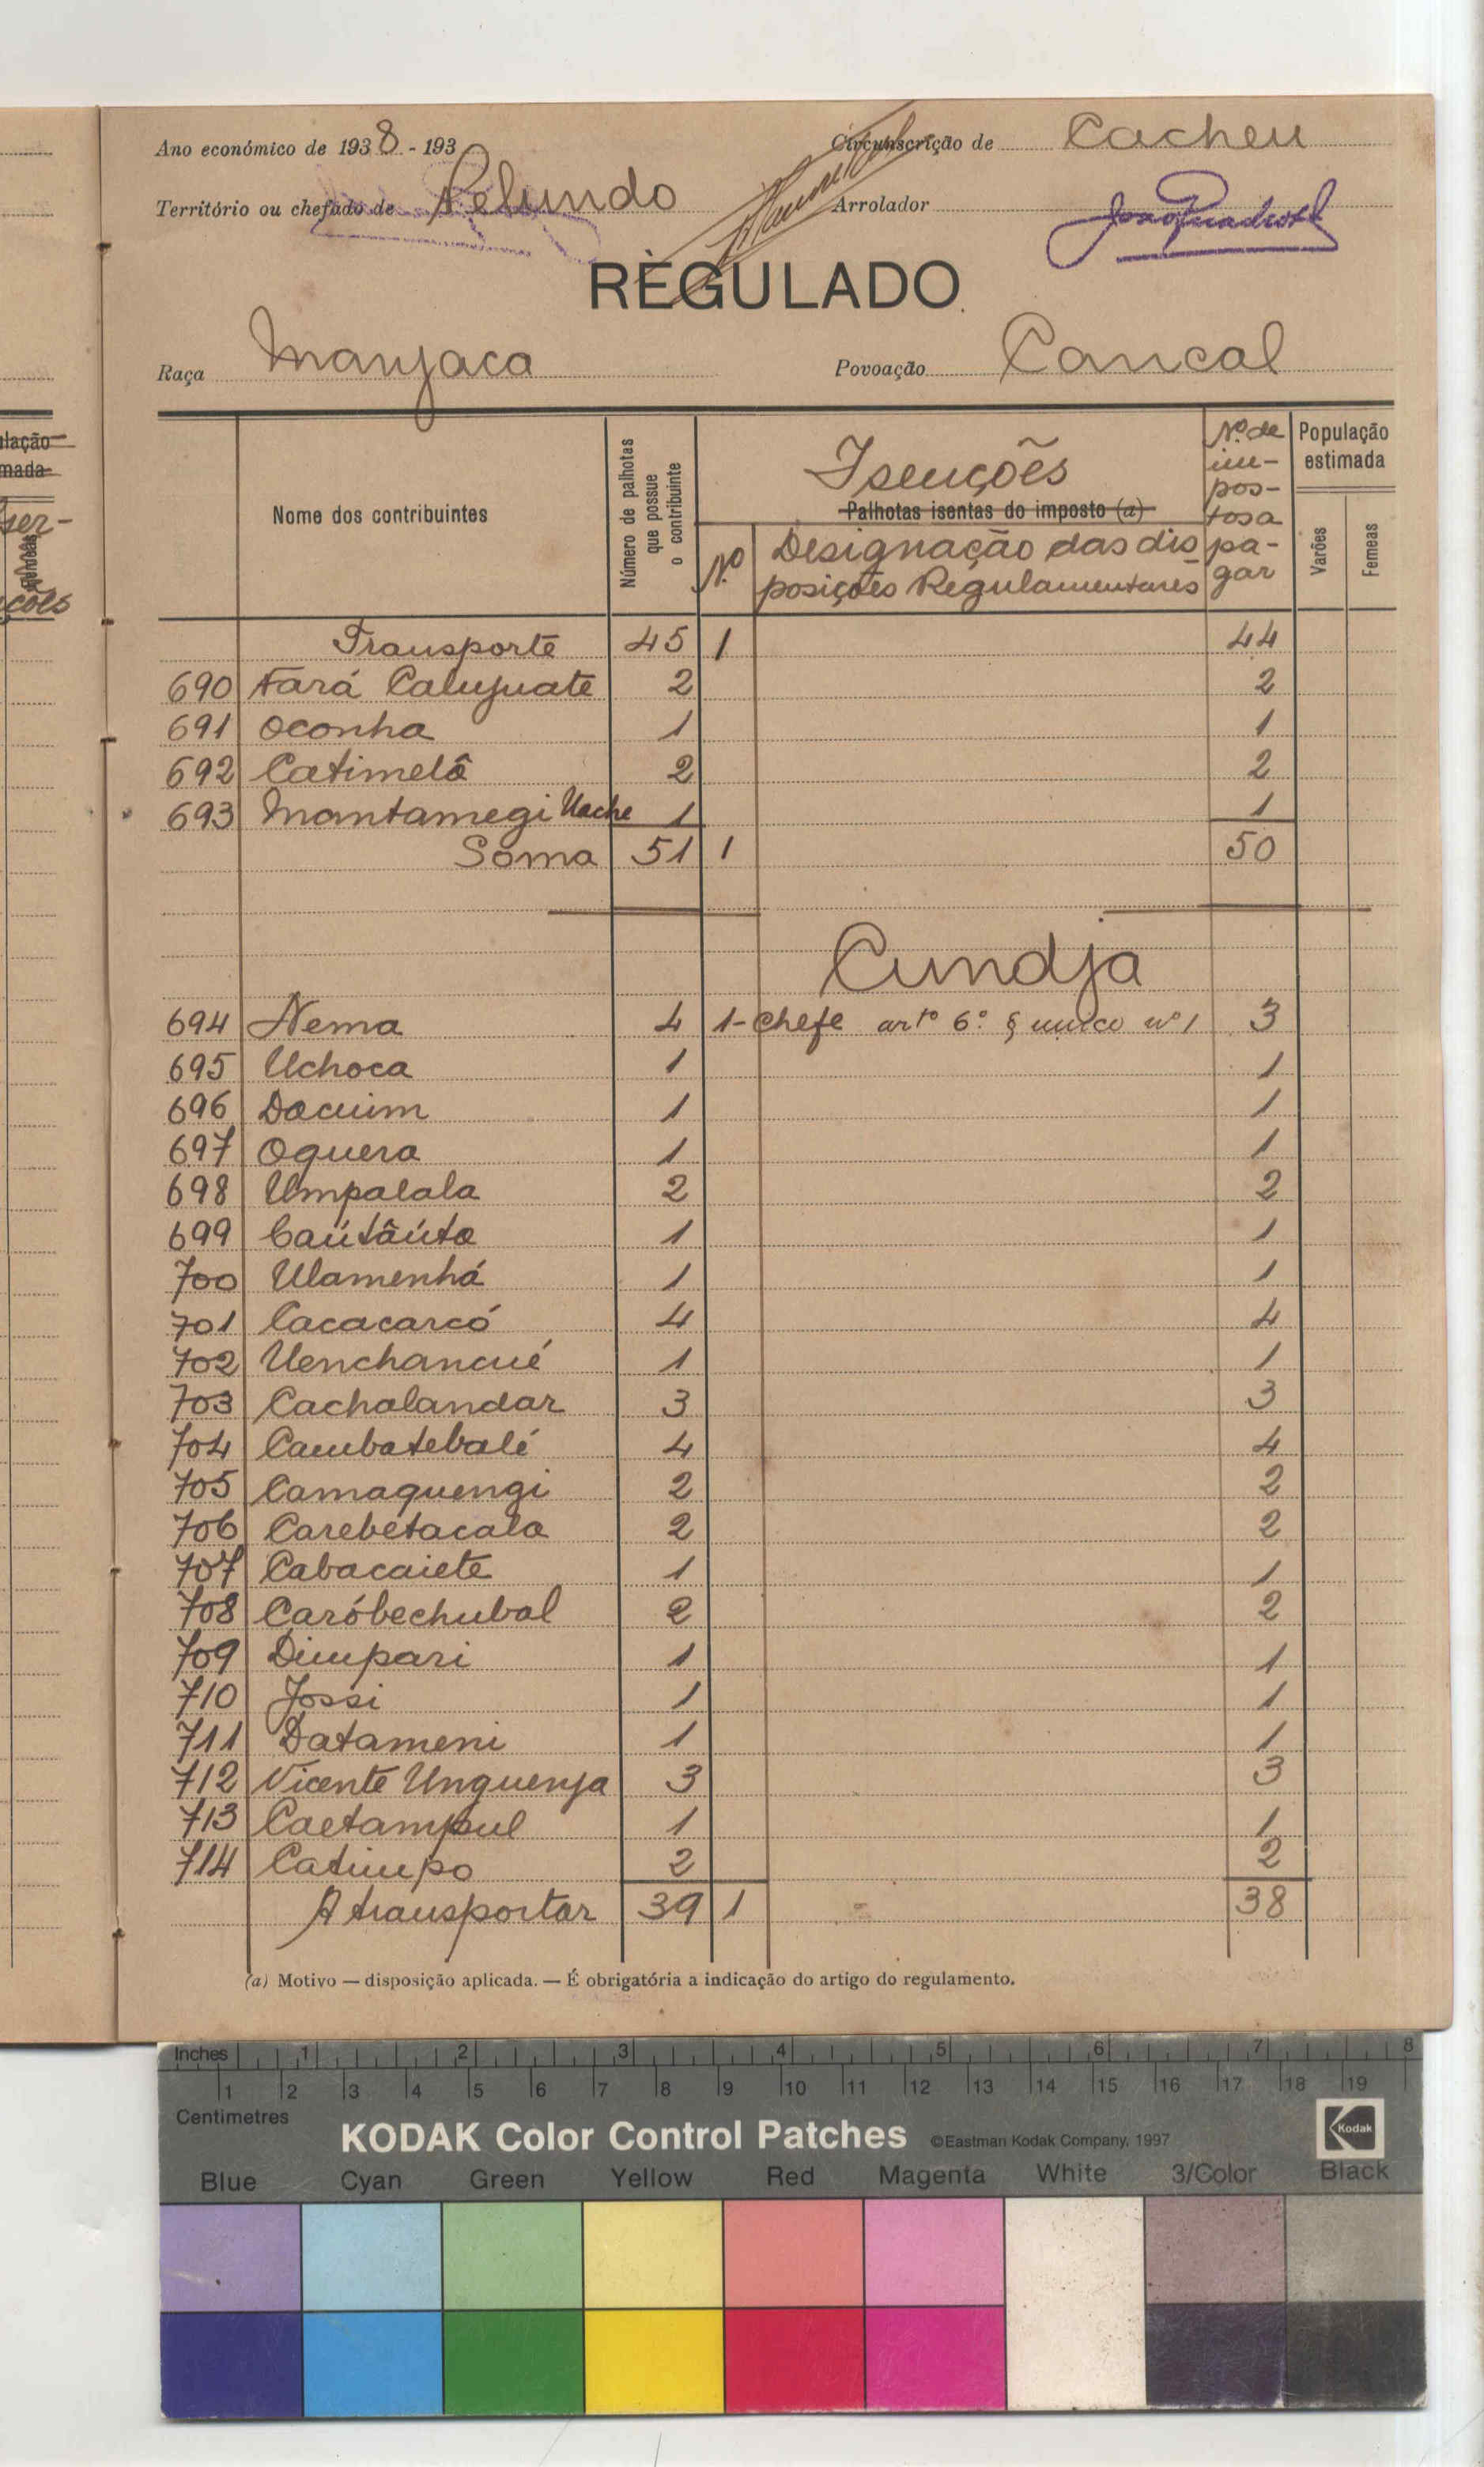 Ano económico de 1938 - 193
Circunscrição de Cacheu
Território ou chefado de Pelundo
Arrolador
REGULADO
Raça Manjaca
Povoação Cancal
Nome dos contribuintes
Número de palhotas que possue o contribuinte
Isenções
Palhotas isentas do imposto (a)
Nº Designação das disposições Regulamentares
Nº de impostos a pagar
População estimada
Varões Femeas
Transporte 45 1 44
690 Fará Calujuate 2 2
691 Oconha 1 1
692 Catimelâ 2 2
693 Mantamegi Uache 1 1
Soma 51 1 50
Cundja
694 Nema 4 1- Chefe artº 6º § unico nº 1 3
695 Uchoca 1 1
696 Dacuim 1 1
697 Oguera 1 1
698 Umpalala 2 2
699 Caútâúta 1 1
700 Ulamenhá 1 1
701 Cacacarcó 4 4
702 Uenchancué 1 1
703 Cachalandar 3 3
704 Cambatebalé 4 4
705 Camaquengi 2 2
706 Carebetacala 2 2
707 Cabacaiete 1 1
708 Caróbechubal 2 2
709 Dimpari 1 1
710 Jossi 1 1
711 Datameni 1 1
712 Vicente Unguenja 3 3
713 Caetampul 1 1
714 Catimpo 2 2
A transportar 39 1 38
(a) Motivo — disposição aplicada. — É obrigatória a indicação do artigo do regulamento.
Inches 1 2 3 4 5 6 7 8
1 2 3 4 5 6 7 8 9 10 11 12 13 14 15 16 17 18 19
Centimetres
KODAK Color Control Patches ©Eastman Kodak Company, 1997 Kodak
Blue Cyan Green Yellow Red Magenta White 3/Color Black